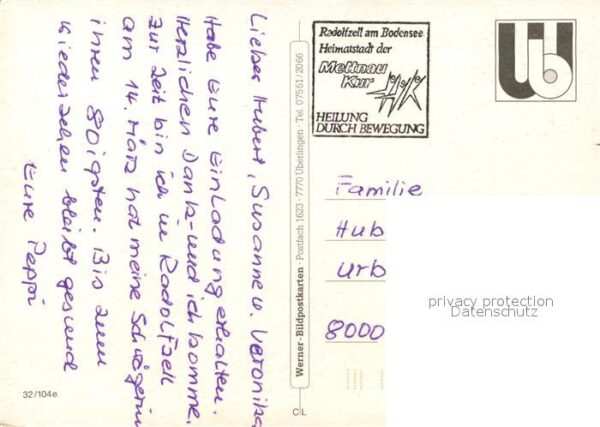 Lieber Hubert, Susanne u. Veronika,
Habe Eure Einladung erhalten.
Herzlichen Dank - und ich komme.
Zur Zeit bin ich in Radolfzell
am 14. März hat meine Schwägerin
ihren 80igsten. Bis zum
Wiedersehen bleibt gesund
Eure Peppi
32/104e
Werner-Bildpostkarten · Postfach 1623 · 7770 Überlingen · Tel. 07551/2066
CL
Radolfzell am Bodensee
Heimatstadt der
Mettnau
Kur
HEILUNG
DURCH BEWEGUNG
Familie
Hub
Urb
8000
privacy protection
Datenschutz